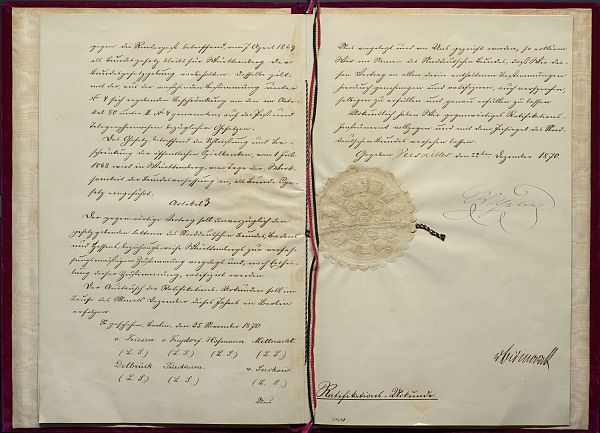 gegen die Rinderpest betreffend, vom 7. April 1869
als Bundesgesetz bleibt für Württemberg der
Bundesgesetzgebung vorbehalten. Dasselbe gilt
mit der, aus der vorstehenden Bestimmung unter
№ 4 sich ergebenden Beschränkung von den im Arti-
kel 80 unter II № 4 genannten, auf das Post- und
Telegraphenwesen bezüglichen Gesetzen.
Das Gesetz, betreffend die Schließung und Be-
schränkung der öffentlichen Spielbanken, vom 1. Juli
1868 wird in Württemberg, vom Tage der Wirk-
samkeit der Bundesverfassung an, als Bundesge-
setz eingeführt.
Artikel 3
Der gegenwärtige Vertrag soll unverzüglich den
gesetzgebenden Faktoren des Norddeutschen Bundes, Badens
und Hessens, beziehungsweise Württembergs zur verfas-
sungsmäßigen Zustimmung vorgelegt und, nach Erthei-
lung dieser Zustimmung, ratifizirt werden.
Der Austausch der Ratifikations-Urkunden soll im
Laufe des Monats Dezember dieses Jahres in Berlin
erfolgen.
So geschehen, Berlin, den 25 November 1870.
v. Friesen. v. Freydorf. Hofmann. Mittnacht.
(L. S.) (L. S.) (L. S.) (L. S.)
Delbrück. Türckheim. v. Suckow.
(L. S.) (L. S.) (L. S.)
Uns vorgelegt und von Uns geprüft worden, so erklären
Wir im Namen des Norddeutschen Bundes, daß Wir die-
sen Vertrag in allen darin enthaltenen Bestimmungen
hierdurch genehmigen und ratifiziren, auch versprechen,
solchen zu erfüllen und genau erfüllen zu lassen.
Urkundlich haben Wir gegenwärtiges Ratifikations-
Instrument vollzogen und mit dem Insiegel des Nord-
deutschen Bundes versehen lassen.
Gegeben Versailles den 22ten Dezember 1870.
Wilhelm
v Bismarck
Ratifikations-Urkunde.